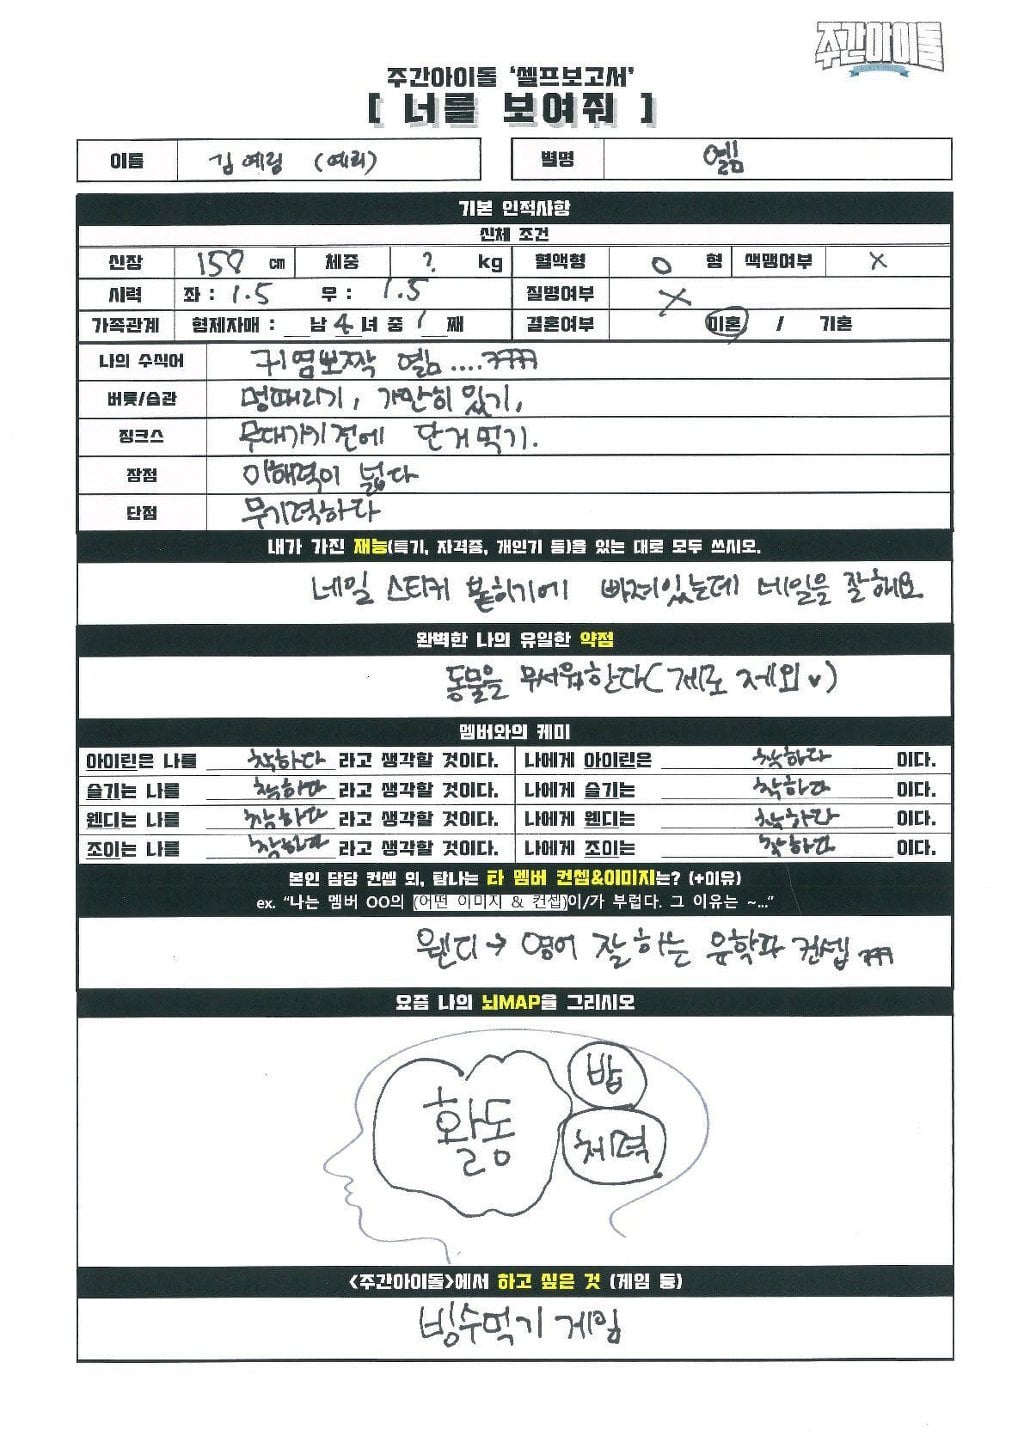 주간아이돌
주간아이돌 '셀프보고서'
[ 너를 보여줘 ]
이름 김예림 (예리) 별명 옐림
기본 인적사항
신체 조건
신장 158 cm 체중 ? kg 혈액형 O 형 색맹여부 X
시력 좌 : 1.5 우 : 1.5 질병여부 X
가족관계 형제자매 : __남 4 녀 중 1 째 결혼여부 미혼 / 기혼
나의 수식어 귀염뽀짝 옐림....ㅋㅋㅋㅋ
버릇/습관 멍때리기, 가만히 있기,
징크스 무대가기 전에 단거 먹기.
장점 이해력이 넓다
단점 무기력하다
내가 가진 재능(특기, 자격증, 개인기 등)을 있는 대로 모두 쓰시오.
네일 스티커 붙히기에 빠져있는데 네일을 잘해요
완벽한 나의 유일한 약점
동물을 무서워한다( 제로 제외 ♥)
멤버와의 케미
아이린은 나를 착하다 라고 생각할 것이다. 나에게 아이린은 착하다 이다.
슬기는 나를 착하다 라고 생각할 것이다. 나에게 슬기는 착하다 이다.
웬디는 나를 착하다 라고 생각할 것이다. 나에게 웬디는 착하다 이다.
조이는 나를 착하다 라고 생각할 것이다. 나에게 조이는 착하다 이다.
본인 담당 컨셉 외, 탐나는 타 멤버 컨셉&이미지는? (+이유)
ex. "나는 멤버 OO의 (어떤 이미지 & 컨셉)이/가 부럽다. 그 이유는 ~..."
웬디 → 영어 잘하는 유학파 컨셉 ㅋㅋㅋ
요즘 나의 뇌MAP을 그리시오
밥
활동
체력
<주간아이돌>에서 하고 싶은 것 (게임 등)
빙수먹기 게임